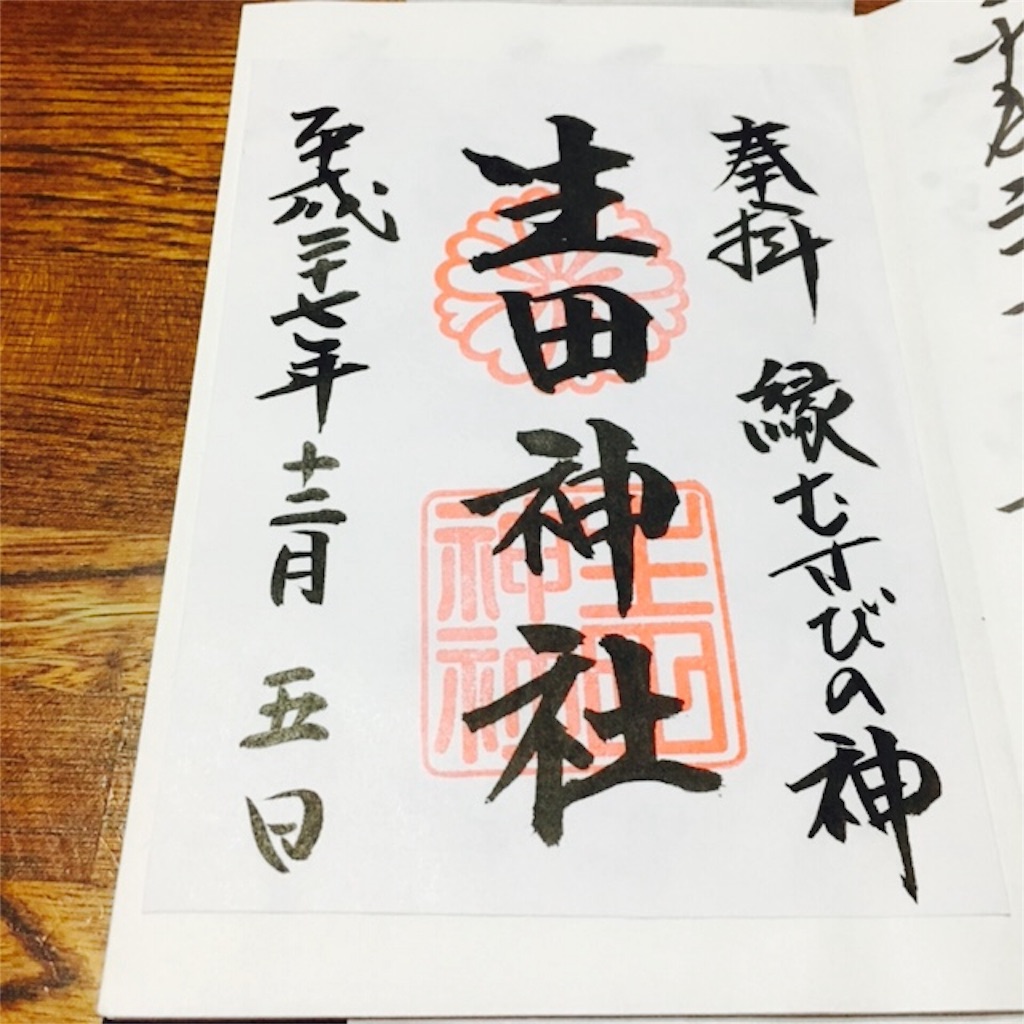 奉拝 縁むすびの神
生田神社
生田神社
平成二十七年十二月 五日